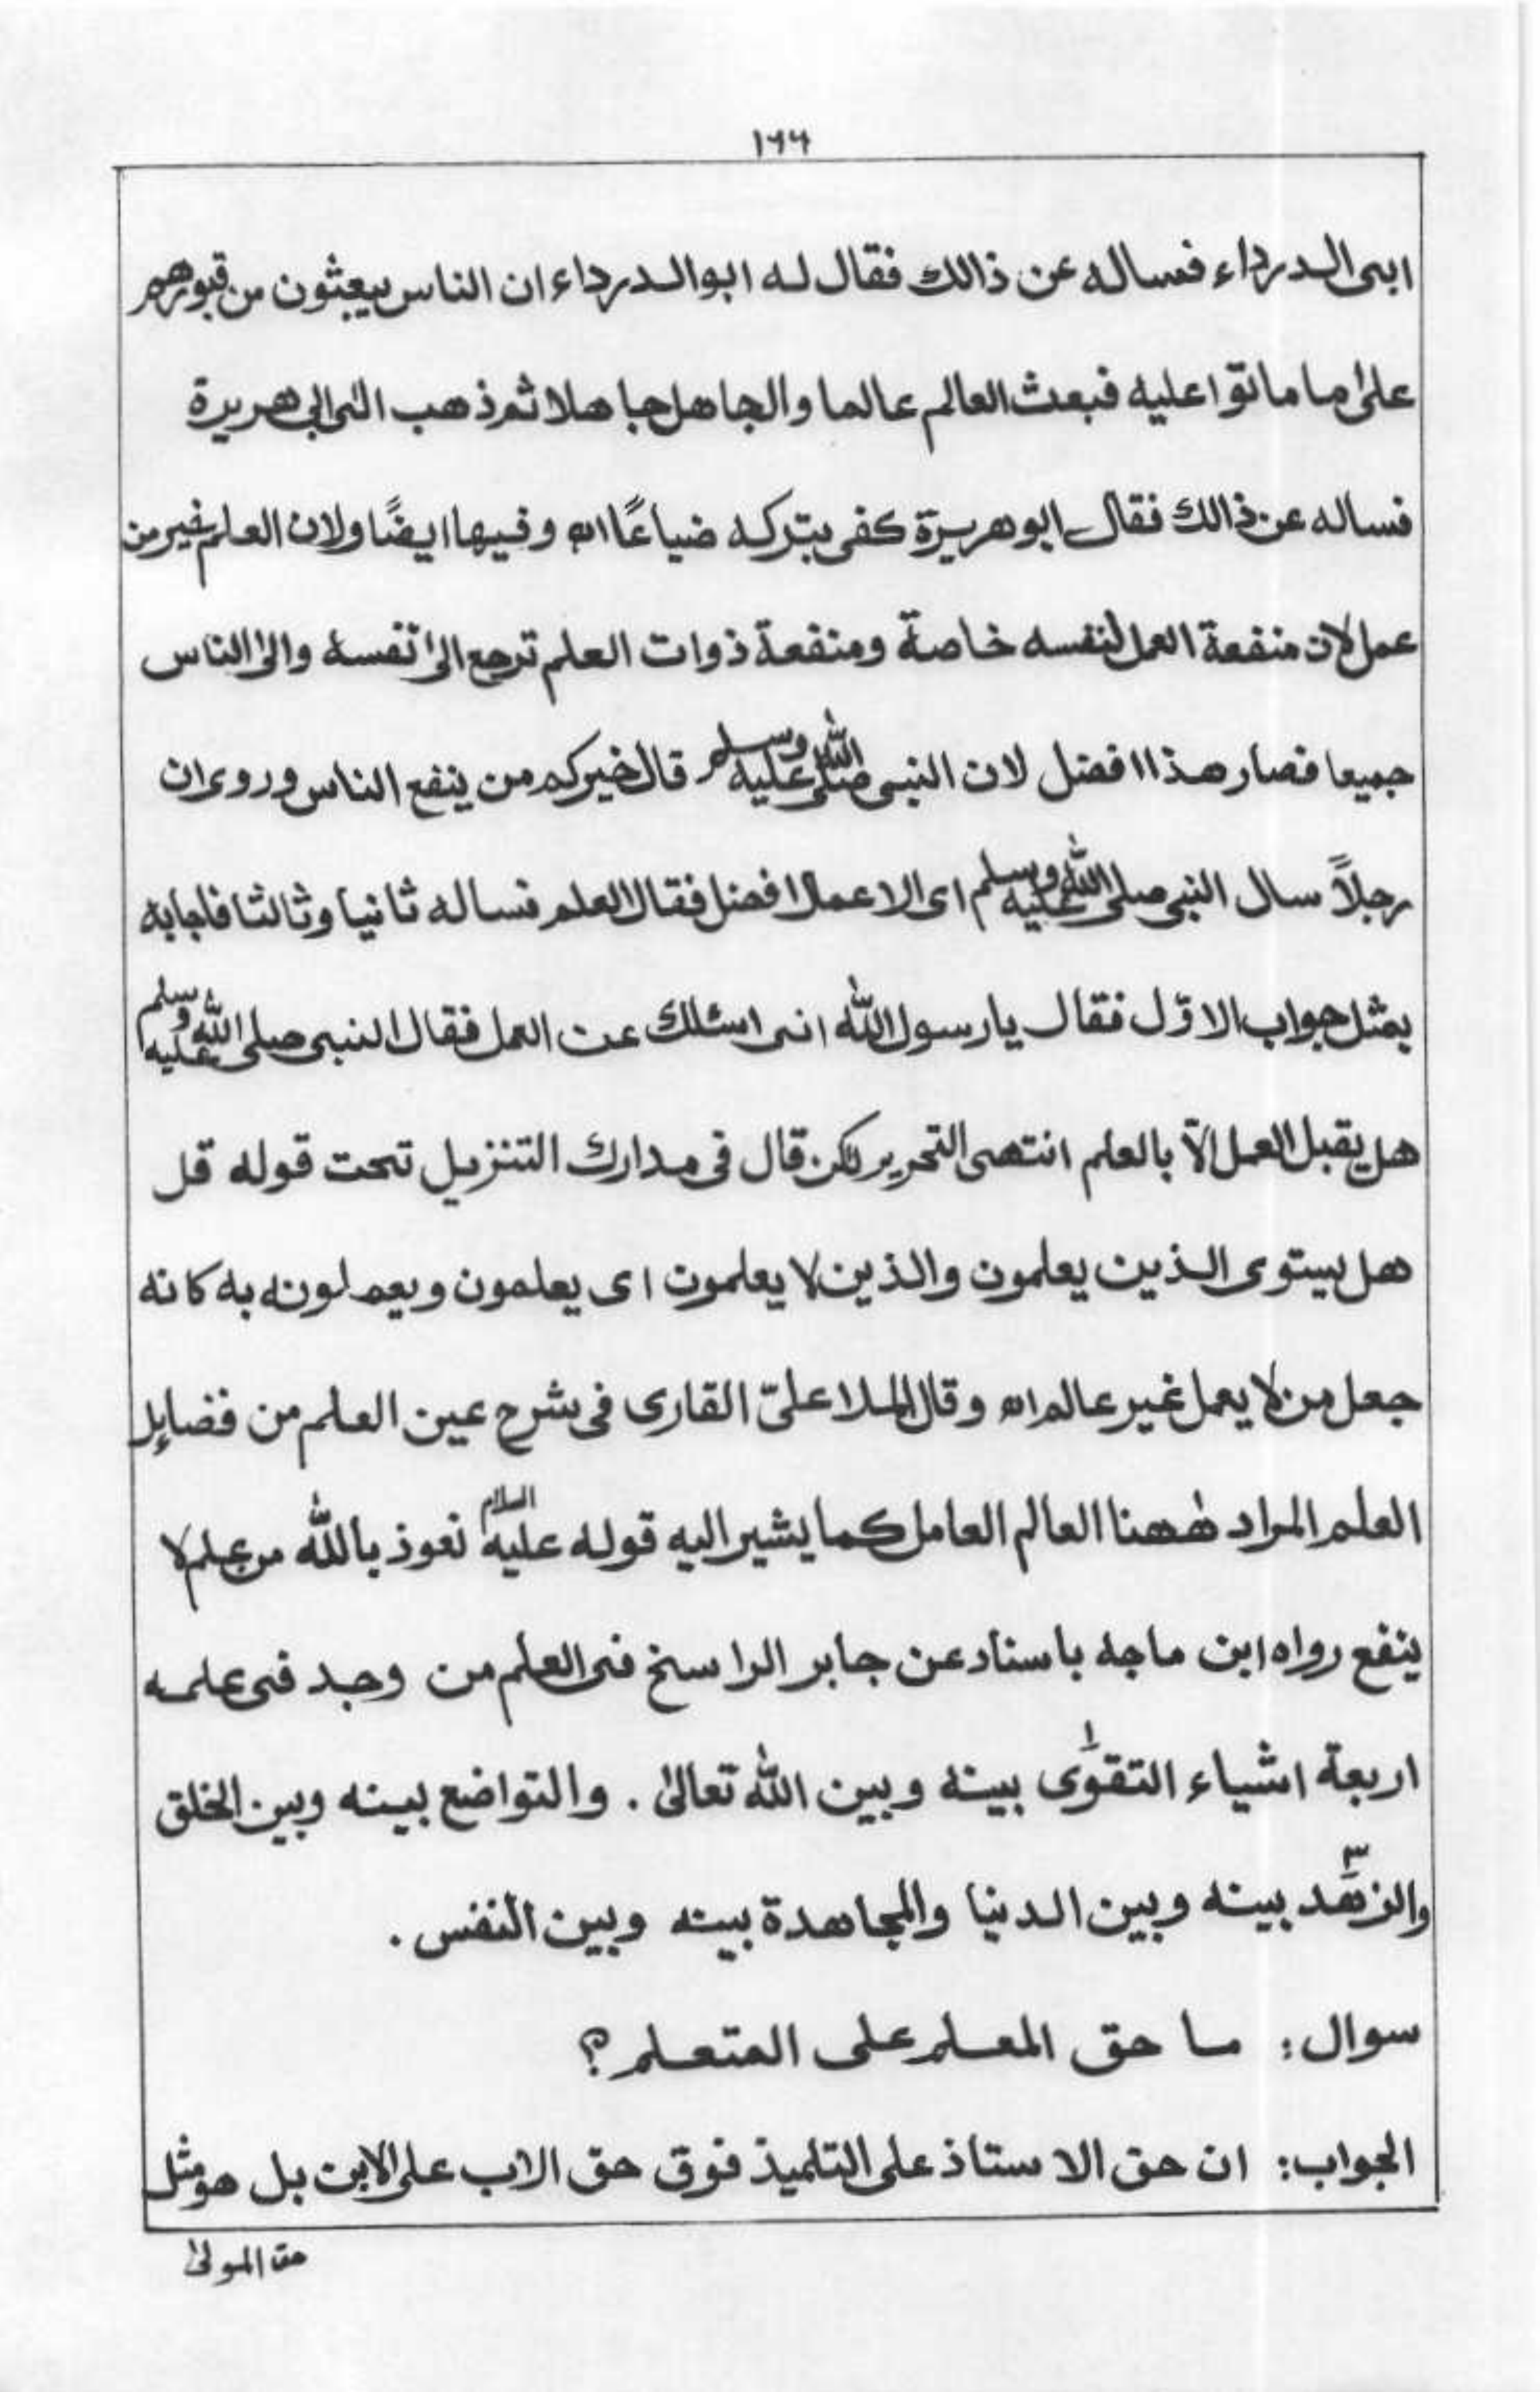 ۱۶۶
ابی الدرداء فساله عن ذالك فقال له ابو الدرداء ان الناس يبعثون من قبورهم
علىٰ ما ماتوا عليه فبعث العالم عالما والجاهل جاهلا ثم ذهب الى ابي هريرة
فساله عن ذالك فقال ابو هريرة كفى بتركه ضياعًا اه وفيها ايضًا ولان العلم خير من
عمل لان منفعة العمل لنفسه خاصة ومنفعة ذوات العلم ترجع الىٰ نفسه والىٰ الناس
جميعا فصار هذا افضل لان النبى صلى الله عليه وسلم قال خيركم من ينفع الناس وروى ان
رجلاً سال النبى صلى الله عليه وسلم اى الاعمال افضل فقال العلم فساله ثانيا وثالثا فاجابه
بمثل جواب الاوّل فقال يارسول الله انى اسئلك عن العمل فقال النبى صلى الله عليه وسلم
هل يقبل العمل الّا بالعلم انتهى التحرير لكن قال فى مدارك التنزيل تحت قوله قل
هل يستوى الذين يعلمون والذين لا يعلمون اى يعلمون ويعملونه به كانه
جعل من لا يعمل غير عالم اه وقال الملا علىّ القارى فى شرح عين العلم من فضايل
العلم المراد ههنا العالم العامل كما يشير اليه قوله عليه السلام نعوذ بالله من علم لا
ينفع رواه ابن ماجه باسناد عن جابر الراسخ فى العلم من وجد فى علمه
اربعة اشياء التقوٰى بينه وبين الله تعالىٰ . والتواضع بينه وبين الخلق
والزهد بينه وبين الدنيا والمجاهدة بينه وبين النفس .
سوال : ما حق المعلم على المتعلم ؟
الجواب : ان حق الاستاذ على التلميذ فوق حق الاب على الابن بل هو مثل
حق المولىٰ